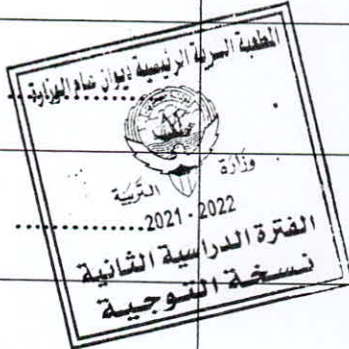 المطبعة السرية الرئيسية ديوان عام الوزارة
وزارة
التربية
2021 - 2022
الفترة الدراسية الثانية
نسخة التوجية